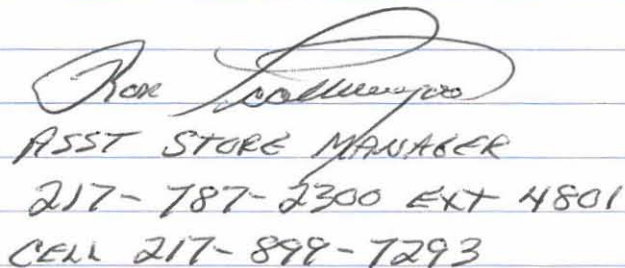 Ron
ASST STORE MANAGER
217-787-2300 EXT 4801
CELL 217-899-7293